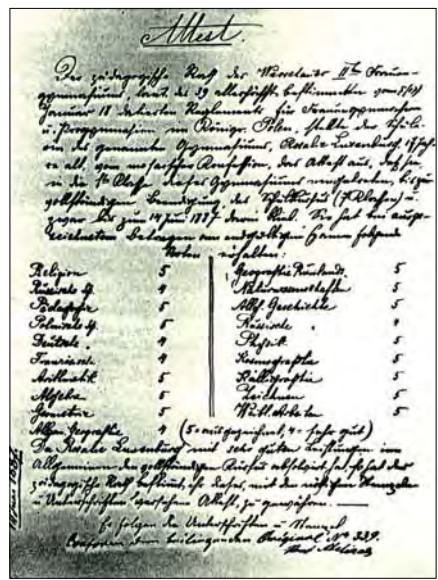 Attest.
Der pädagogische Rath des Warschauer IIten Frauen-
gymnasiums, laut des 19 allerhöchst bestimmten vom
Januar 18 datierten Reglements für Frauengymnasien
u. Progymnasien im Königr. Polen, stellte der Schüle-
rin des genannten Gymnasiums, Rosalie Luxenburg, 17 Jah-
re alt, von mosaischer Konfession, das Attest aus, daß sie
in die 1te Klasse dieses Gymnasiums, bis zur
vollständigen Beendigung des Schulkursus (7 Klassen) u.
zwar bis zum 14 Juni 1887 darin blieb. Sie hat bei ausge-
zeichnetem Betragen am endgültigen Examen folgende
Noten erhalten:
Religion 5
Russische Sp. 4
Pädagogik 5
Polnische Sp. 5
Deutsche " 4
Französische " 4
Arithmetik 5
Algebra 5
Geometrie 5
Allgem. Geographie 4
Geographie Russlands 5
Naturwissenschaften 5
Allg. Geschichte 5
Russische " 4
Physik 5
Kosmographie 5
Kalligraphie 5
Zeichnen 5
Weibl. Arbeiten 5
(5 = ausgezeichnet, 4 = sehr gut)
Da Rosalie Luxenburg mit sehr guten Leistungen im
Allgemeinen den vollständigen Kursus absolviert hat, so hat der
pädagogische Rath bestimmt, ihr dieses, mit den nöthigen Stempeln
u. Unterschriften versehene Attest, zu gewähren.
Es folgen die Unterschriften u. Stempel
Conform dem beiliegenden Original No 329.